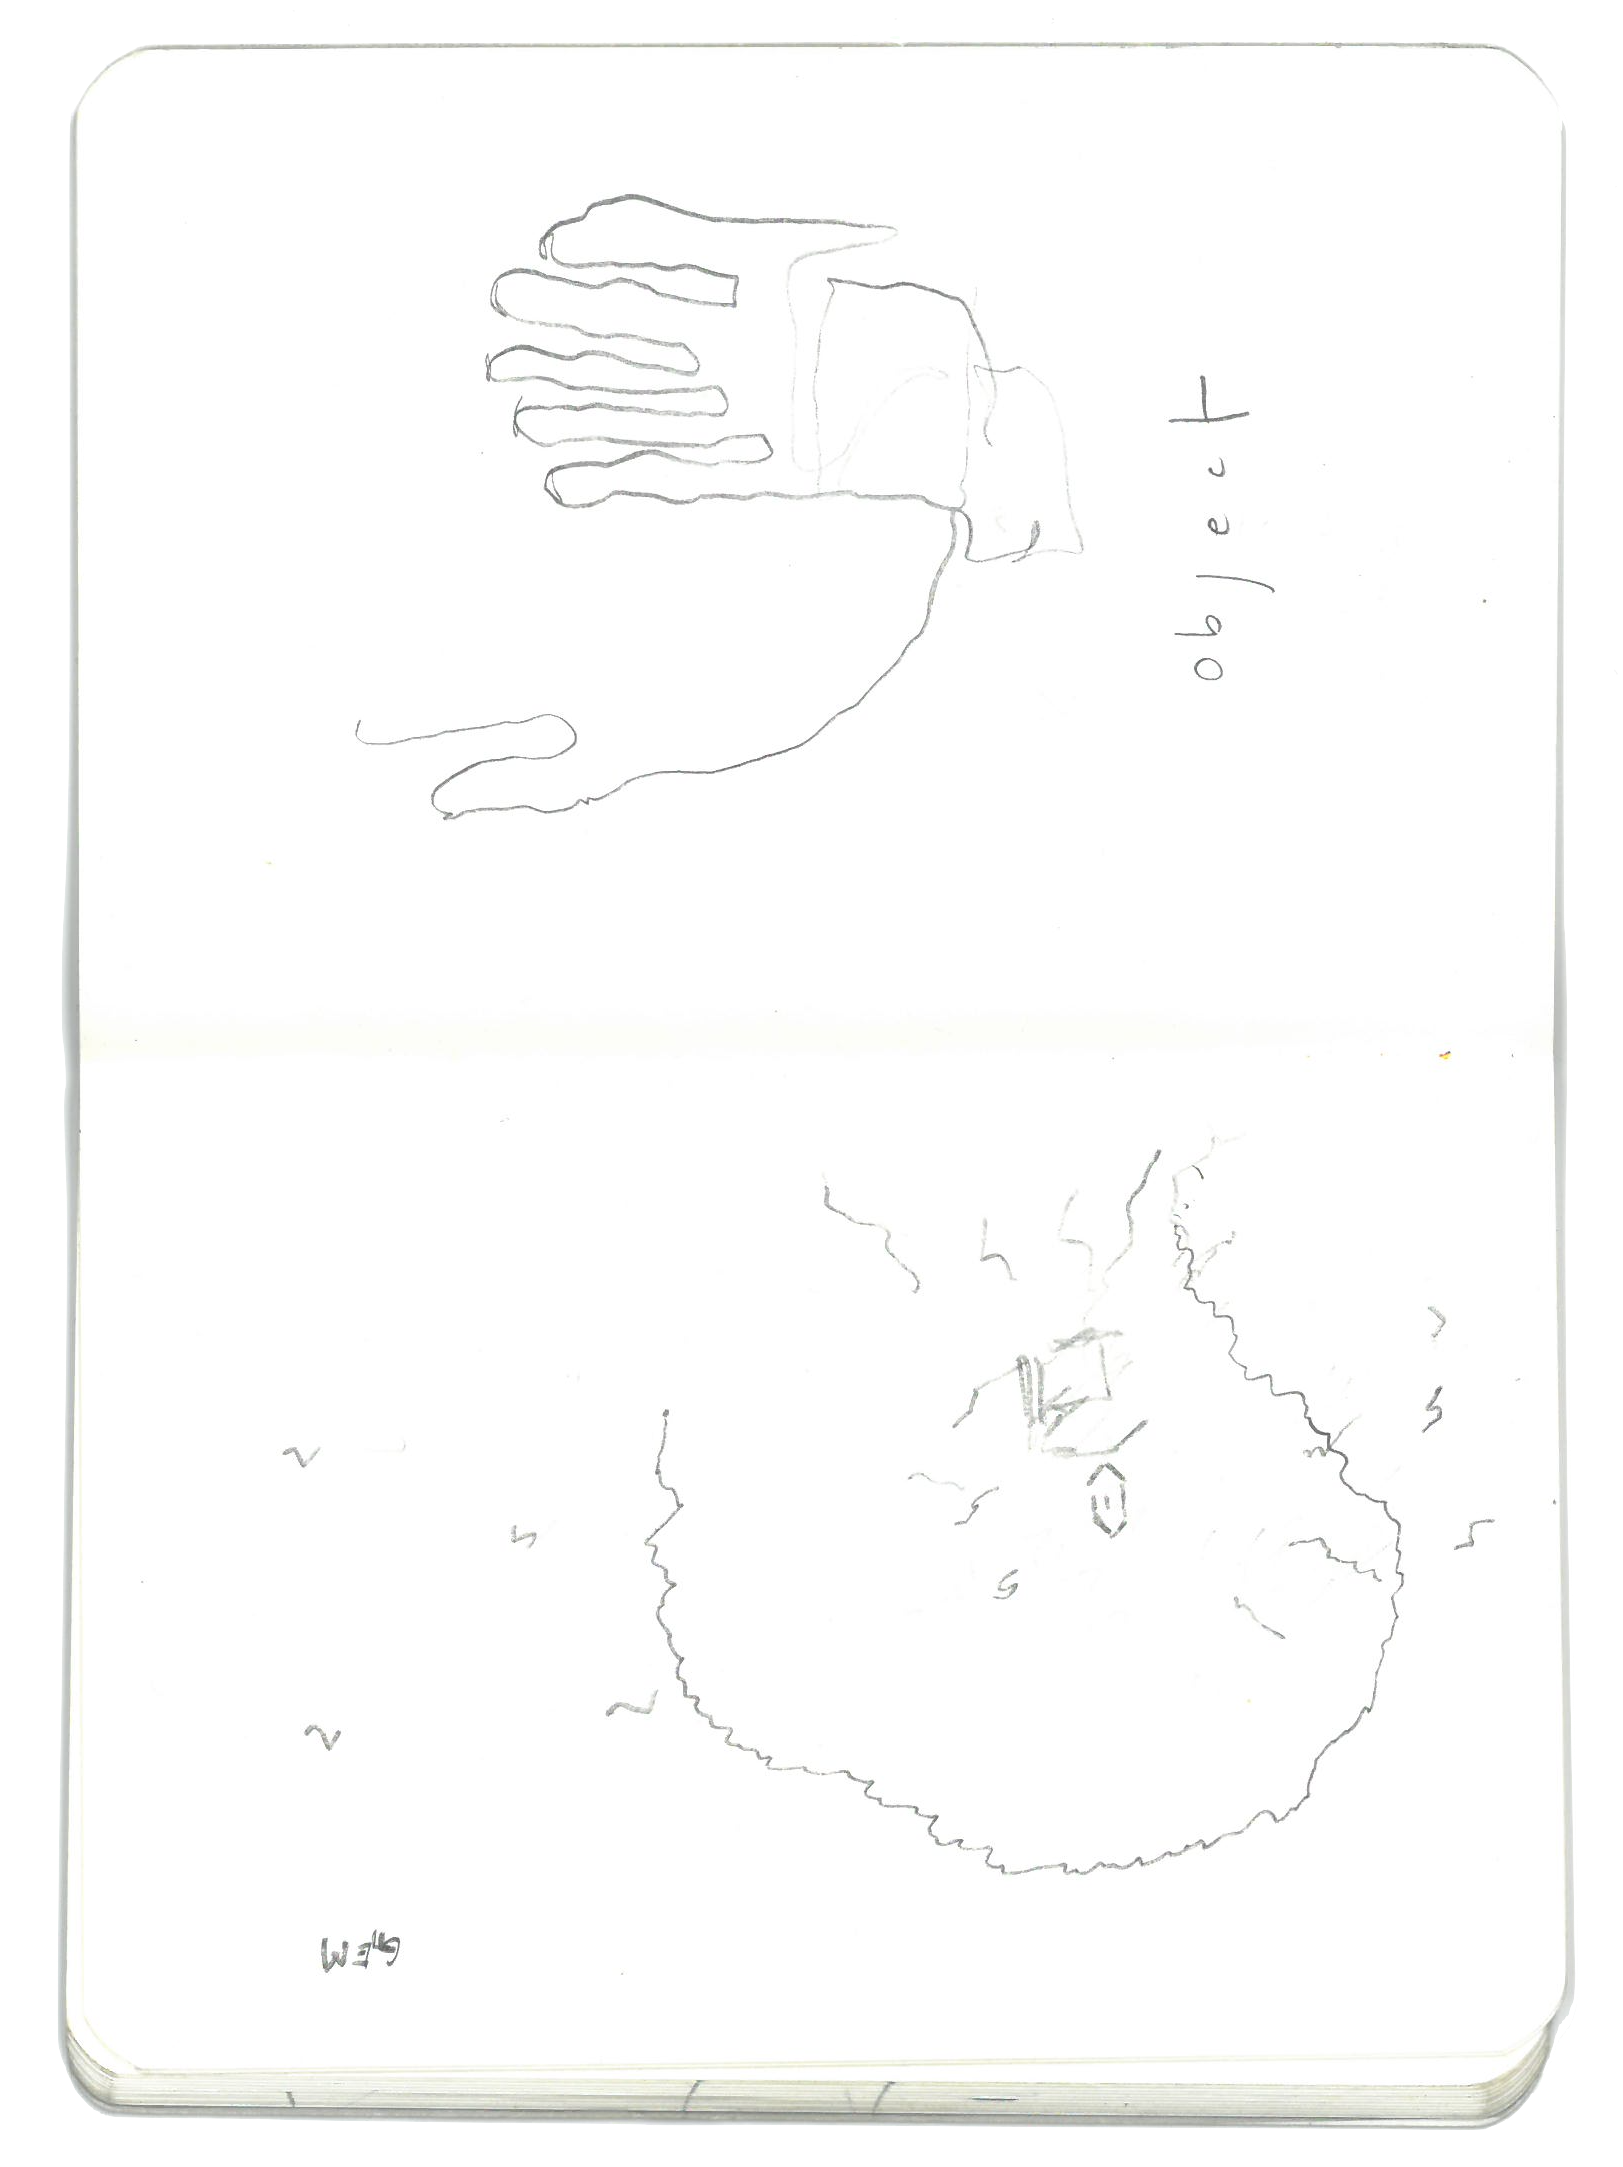 object
GEM